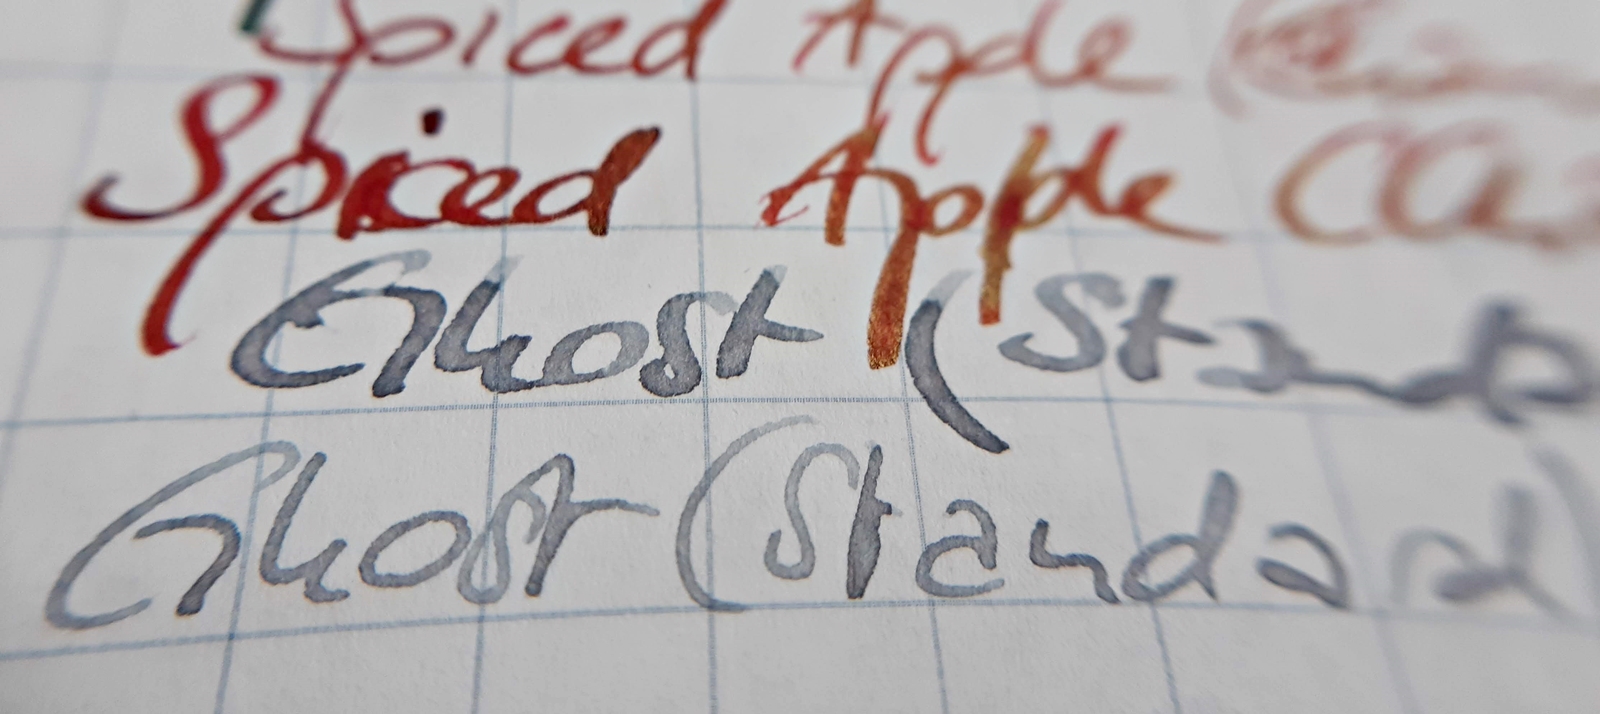 Spiced Apple
Spiced Apple
Ghost (Stand
Ghost (Standard